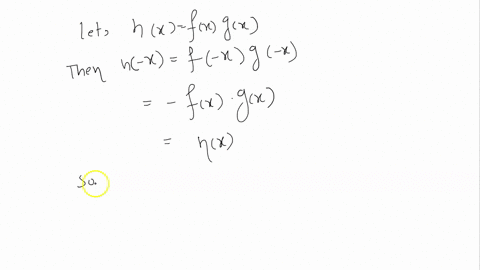 Let, h(x) = f(x) g(x)
Then h(-x) = f(-x) g(-x)
= - f(x) · g(x)
= h(x)
So.